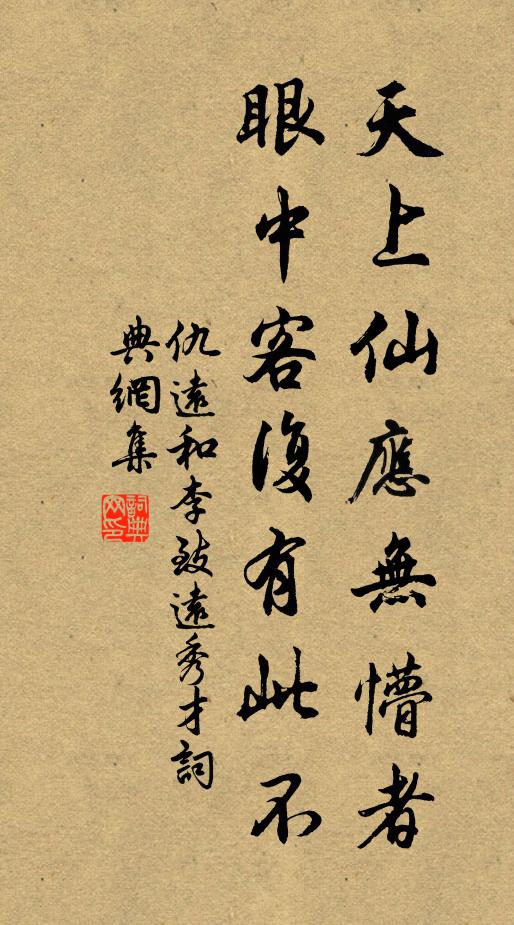 天上仙應無懵者
眼中客復有此不
仇遠和李致遠秀才詞
典網集
詞典
網印